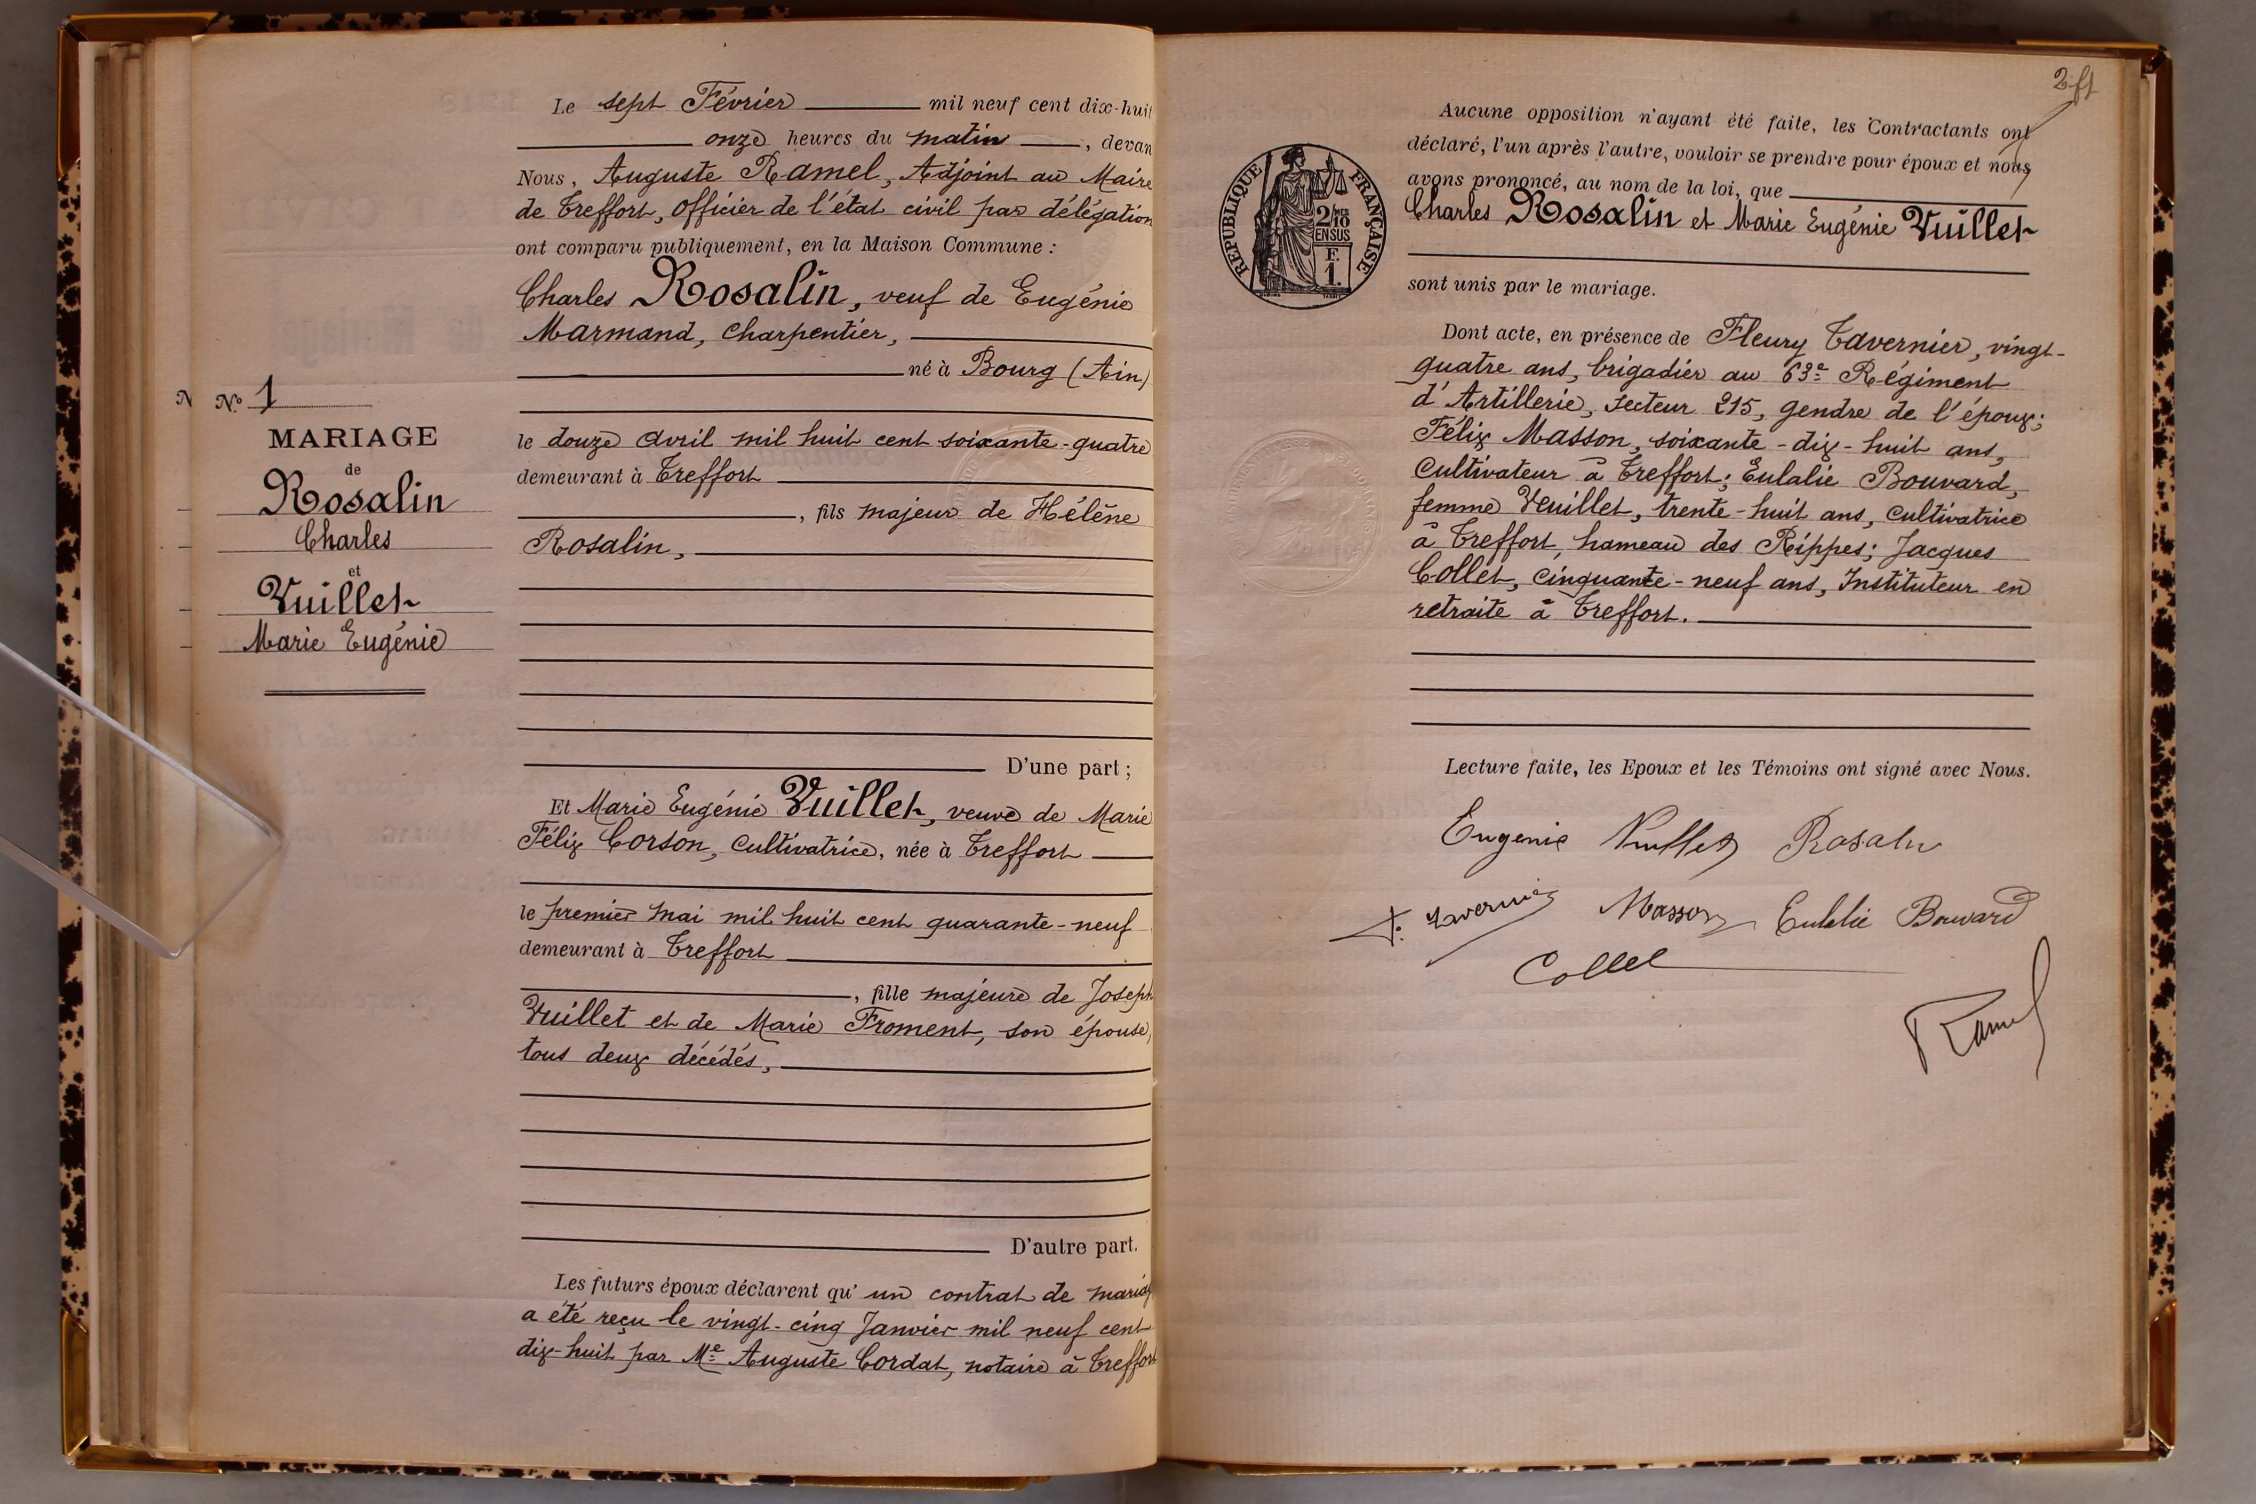 Le sept Février mil neuf cent dix-huit
onze heures du matin, devan
Nous, Auguste Ramel, Adjoint au Maire
de Treffort, Officier de l'état civil par délégation
ont comparu publiquement, en la Maison Commune :
Charles Rosalin, veuf de Eugénie
Marmand, charpentier,
né à Bourg (Ain)
le douze avril mil huit cent soixante-quatre
demeurant à Treffort
, fils majeur de Hélène
Rosalin,
D'une part ;
Et Marie Eugénie Vuillet, veuve de Marie
Félix Corson, cultivatrice, née à Treffort
le premier mai mil huit cent quarante-neuf
demeurant à Treffort
, fille majeure de Joseph
Vuillet et de Marie Froment, son épouse,
tous deux décédés,
D'autre part.
Les futurs époux déclarent qu'un contrat de mariag
a été reçu le vingt-cinq Janvier mil neuf cent
dix-huit par Me Auguste Cordat, notaire à Treffort
N
No 1
MARIAGE
de
Rosalin
Charles
et
Vuillet
Marie Eugénie
2 ft
Aucune opposition n'ayant été faite, les Contractants ont
déclaré, l'un après l'autre, vouloir se prendre pour époux et nous
avons prononcé, au nom de la loi, que
Charles Rosalin et Marie Eugénie Vuillet
sont unis par le mariage.
RÉPUBLIQUE FRANÇAISE
2/10 MES
EN SUS
F.
1.
Dont acte, en présence de Fleury Tavernier, vingt-
quatre ans, brigadier au 63e Régiment
d'Artillerie, secteur 215, gendre de l'époux;
Félix Masson, soixante-dix-huit ans,
cultivateur à Treffort; Eulalie Bouvard,
femme Vuillet, trente-huit ans, cultivatrice
à Treffort, hameau des Rippes; Jacques
Collet, cinquante-neuf ans, Instituteur en
retraite à Treffort.
Lecture faite, les Epoux et les Témoins ont signé avec Nous.
Eugenie Vuillet Rosalin
F. Tavernier Masson Eulalie Bouvard
Collet
Ramel